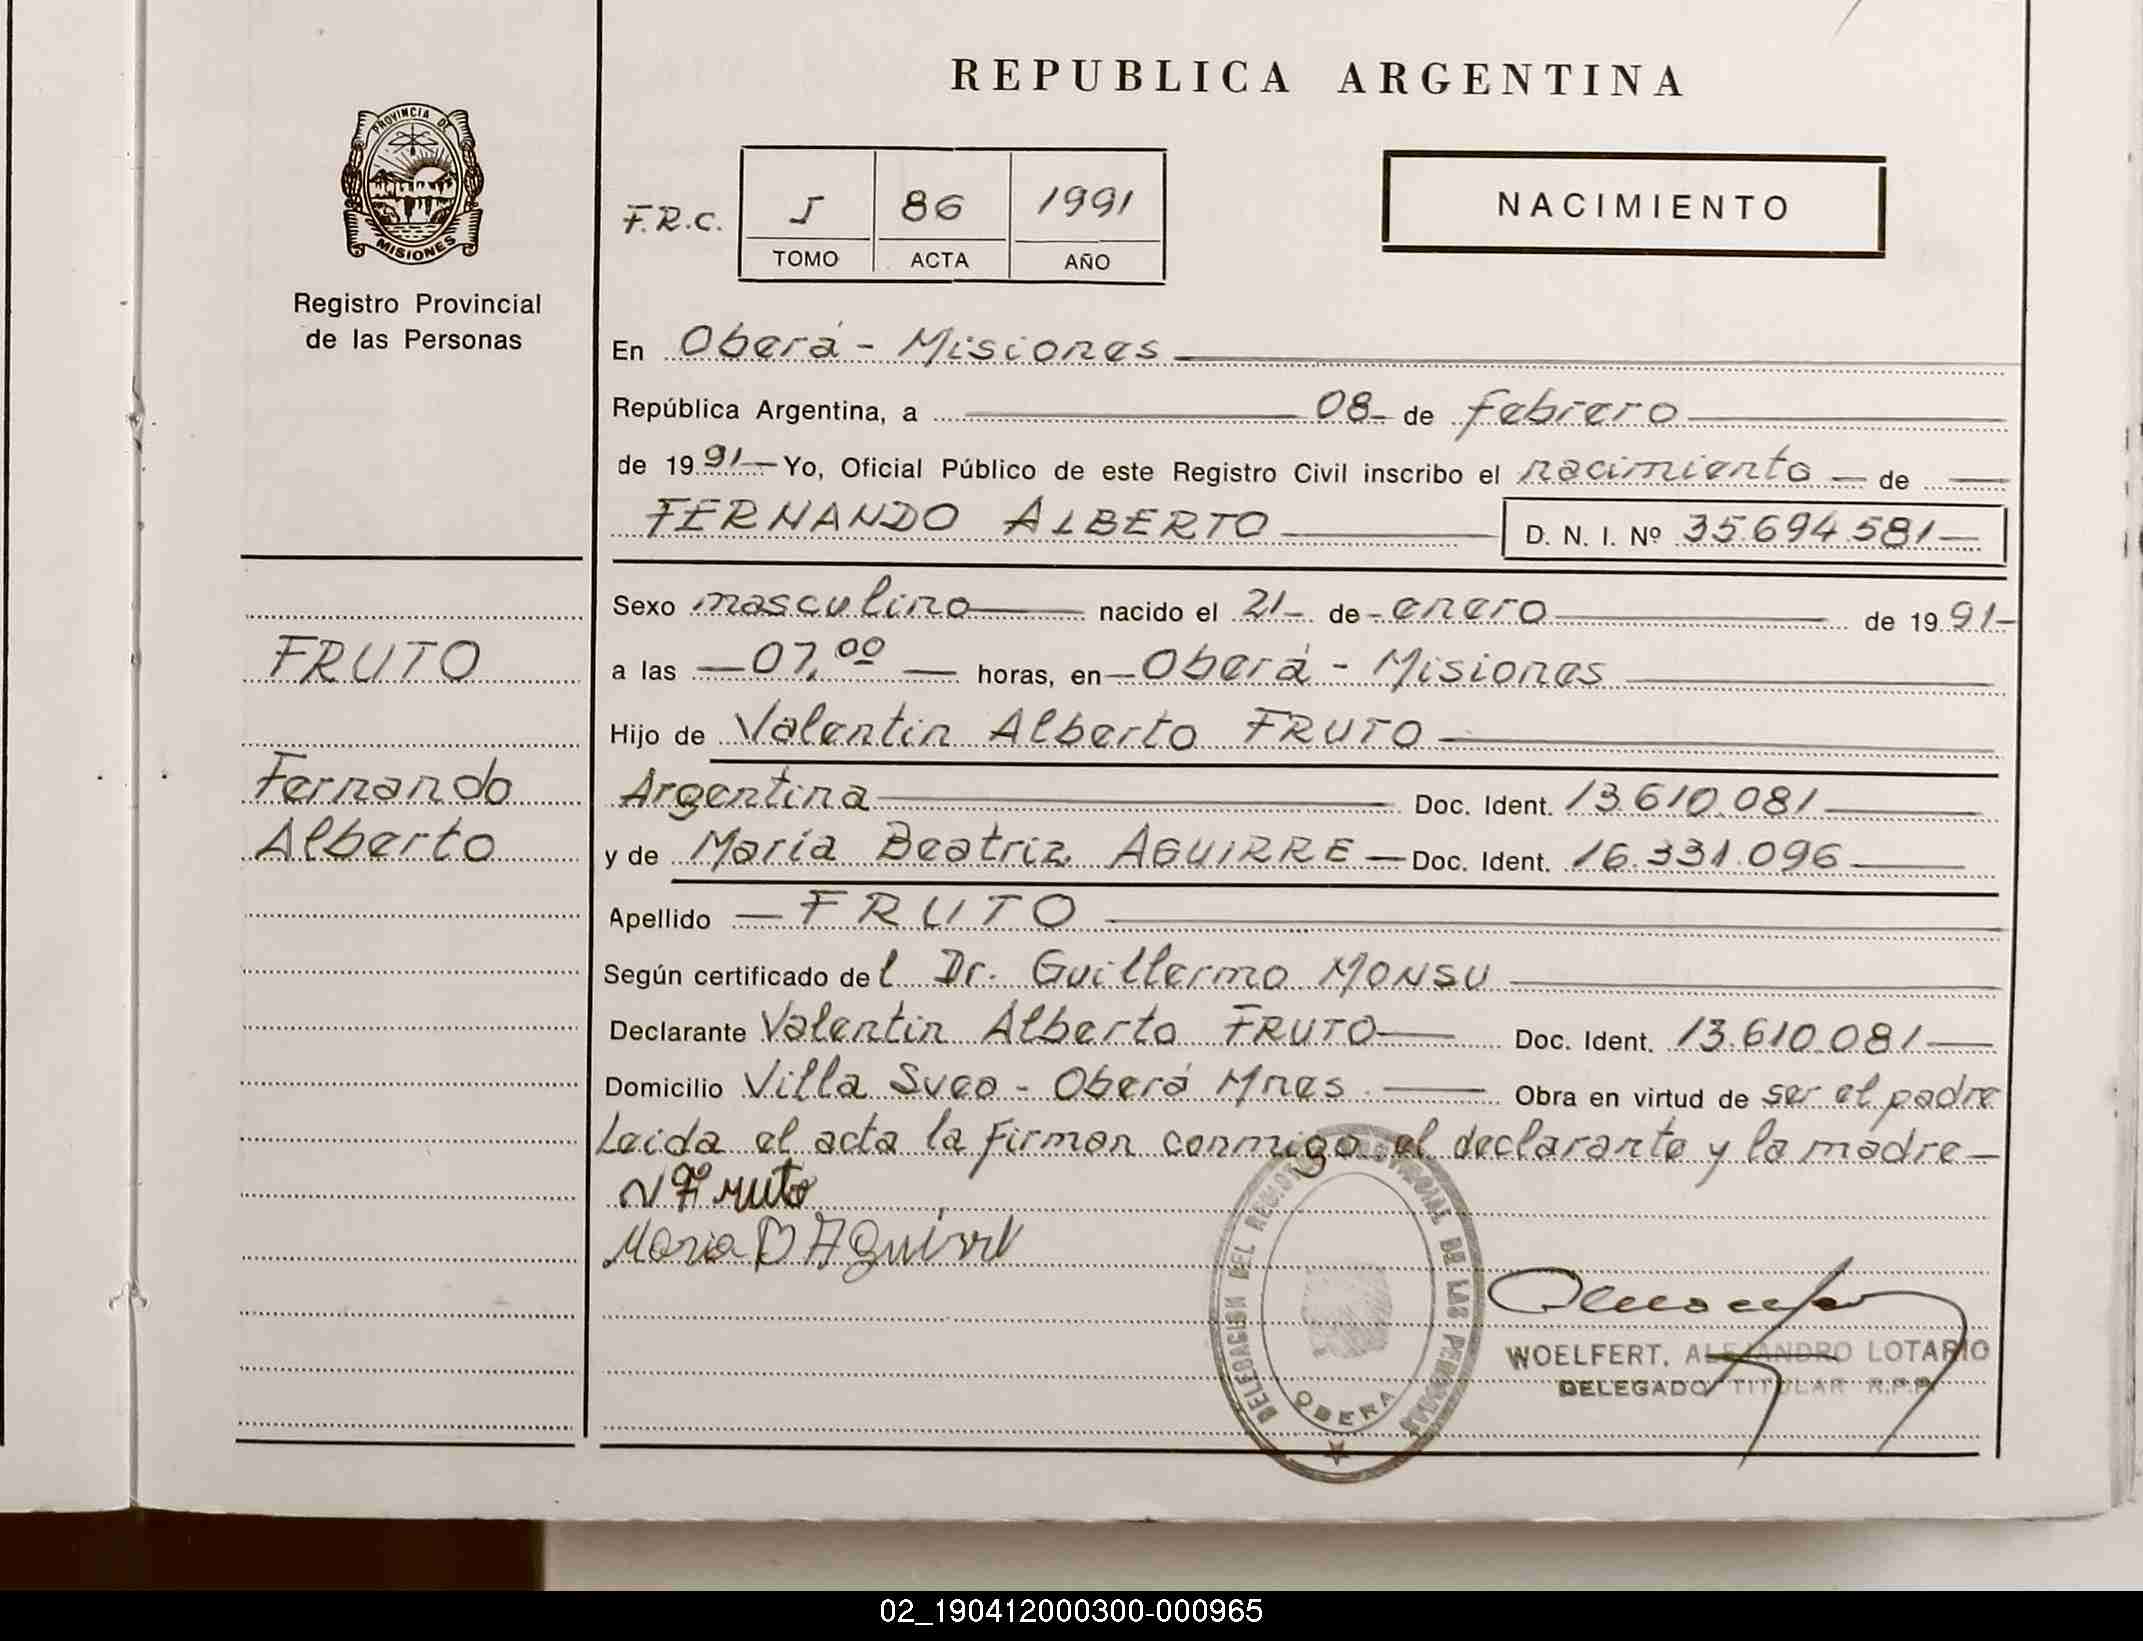 REPUBLICA ARGENTINA
PROVINCIA DE
MISIONES
Registro Provincial
de las Personas
F.R.C. I 86 1991
TOMO ACTA AÑO
NACIMIENTO
En Oberá - Misiones
República Argentina, a 08 de febrero
de 1991 Yo, Oficial Público de este Registro Civil inscribo el nacimiento de
FERNANDO ALBERTO D. N. I. Nº 35.694.581
Sexo masculino nacido el 21 de enero de 1991
FRUTO
a las 07,00 horas, en Oberá - Misiones
Hijo de Valentin Alberto FRUTO
Fernando
Argentina Doc. Ident. 13.610.081
Alberto
y de María Beatriz AGUIRRE Doc. Ident. 16.331.096
Apellido FRUTO
Según certificado del Dr. Guillermo MONSU
Declarante Valentin Alberto FRUTO Doc. Ident. 13.610.081
Domicilio Villa Svea - Oberá Mnes Obra en virtud de ser el padre
Leida el acta la firman conmigo el declarante y la madre
V Fruto
Maria B Aguirre
DELEGACION DEL REGISTRO PROVINCIAL DE LAS PERSONAS
OBERA
WOELFERT, ALEJANDRO LOTARIO
DELEGADO TITULAR R.P.P.
02_190412000300-000965